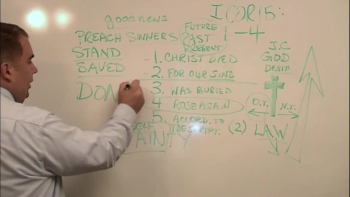 good news
I COR 15:
1-4
PREACH SINNERS
FUTURE
PAST
PRESENT
STAND
SAVED
1. CHRIST DIED
2. FOR OUR SINS
3. WAS BURIED
4. ROSE AGAIN
5. ACCORD. TO
J.C.
GOD
DEATH
O.T.
N.T.
(2) LAW